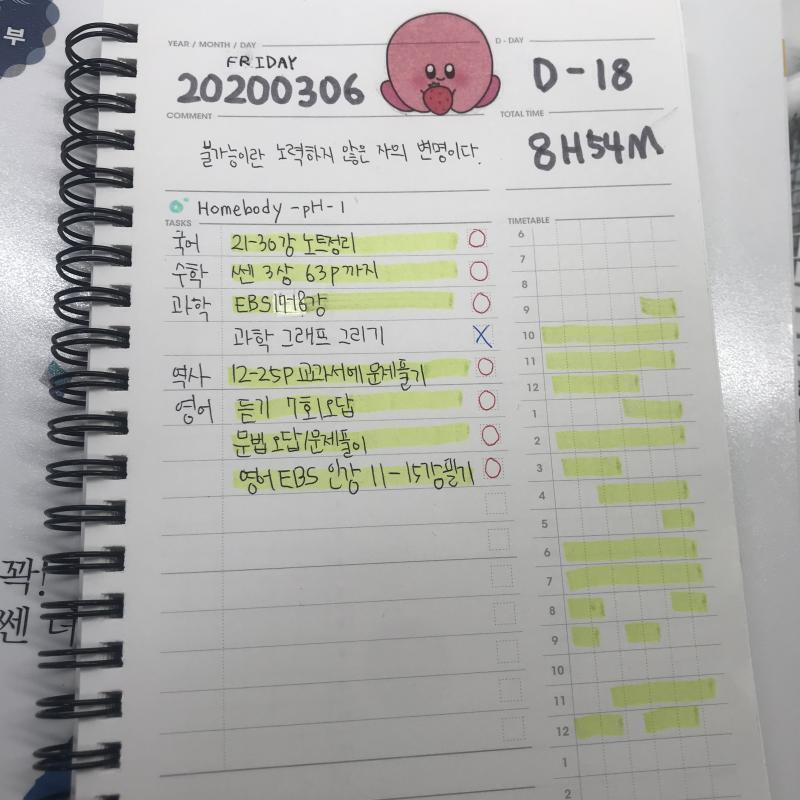 부
YEAR / MONTH / DAY
D - DAY
FRIDAY
20200306
D-18
COMMENT
TOTAL TIME
불가능이란 노력하지 않은 자의 변명이다.
8H54M
Homebody -pH-1
TASKS
TIMETABLE
국어 21-30강 노트정리
수학 쎈 3상 63p까지
과학 EBS 17-18강
과학 그래프 그리기 X
역사 12-25p 교과서에 문제풀기
영어 듣기 7회 오답
문법 오답/문제풀이
영어 EBS 인강 11-15강 필기
6
7
8
9
10
11
12
1
2
3
4
5
6
7
8
9
10
11
12
1
2
꽉!
쎈 너